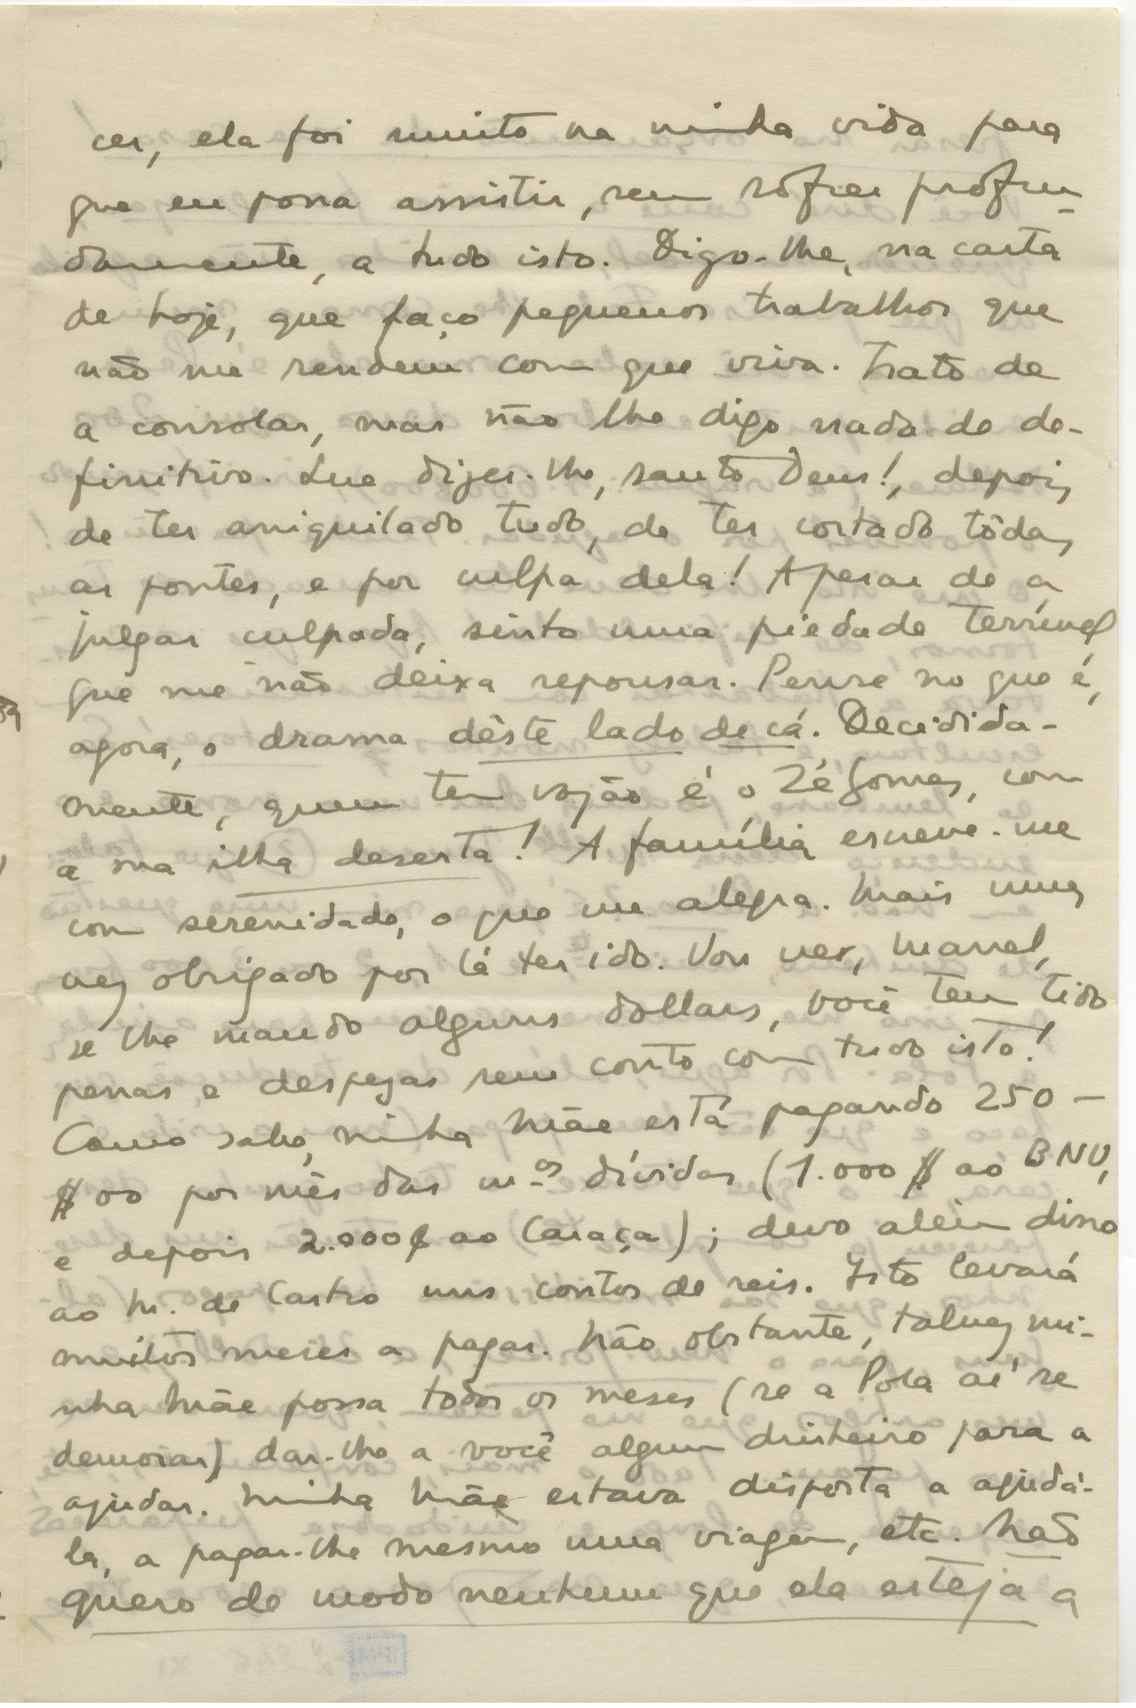 cer, ela foi muito na minha vida para
que eu possa assistir, sem sofrer profun-
damente, a tudo isto. Digo-lhe, na carta
de hoje, que faço pequenos trabalhos que
não me rendem com que viva. Trato de
a consolar, mas não lhe digo nada de de-
finitivo. Que dizer-lhe, santo Deus!, depois
de ter aniquilado tudo, de ter cortado tôdas
as pontes, e por culpa dela! Apesar de a
julgar culpada, sinto uma piedade terrível
que me não deixa repousar. Pense no que é,
agora, o drama dêste lado de cá. Decidida-
mente, quem tem razão é o Zé Gomes, com
a sua ilha deserta! A família escreve-me
com serenidade, o que me alegra. Mais uma
vez obrigado por lá ter ido. Vou ver, Manel,
se lhe mando alguns dollars, você tem tido
penas e despezas sem conto com tudo isto!
Como sabe, minha Mãe está pagando 250-
$00 por mês das m.as dívidas (1.000$ ao BNU,
e depois 2.000$ ao Caraça); devo além disso
ao M. de Castro uns contos de reis. Isto levará
muitos meses a pagar. Não obstante, talvez mi-
nha Mãe possa todos os meses (se a Pola aí se
demorar) dar-lhe a você algum dinheiro para a
ajudar. Minha Mãe estava disposta a ajudá-
la, a pagar-lhe mesmo uma viagem, etc. Não
quero de modo nenhum que ela esteja a